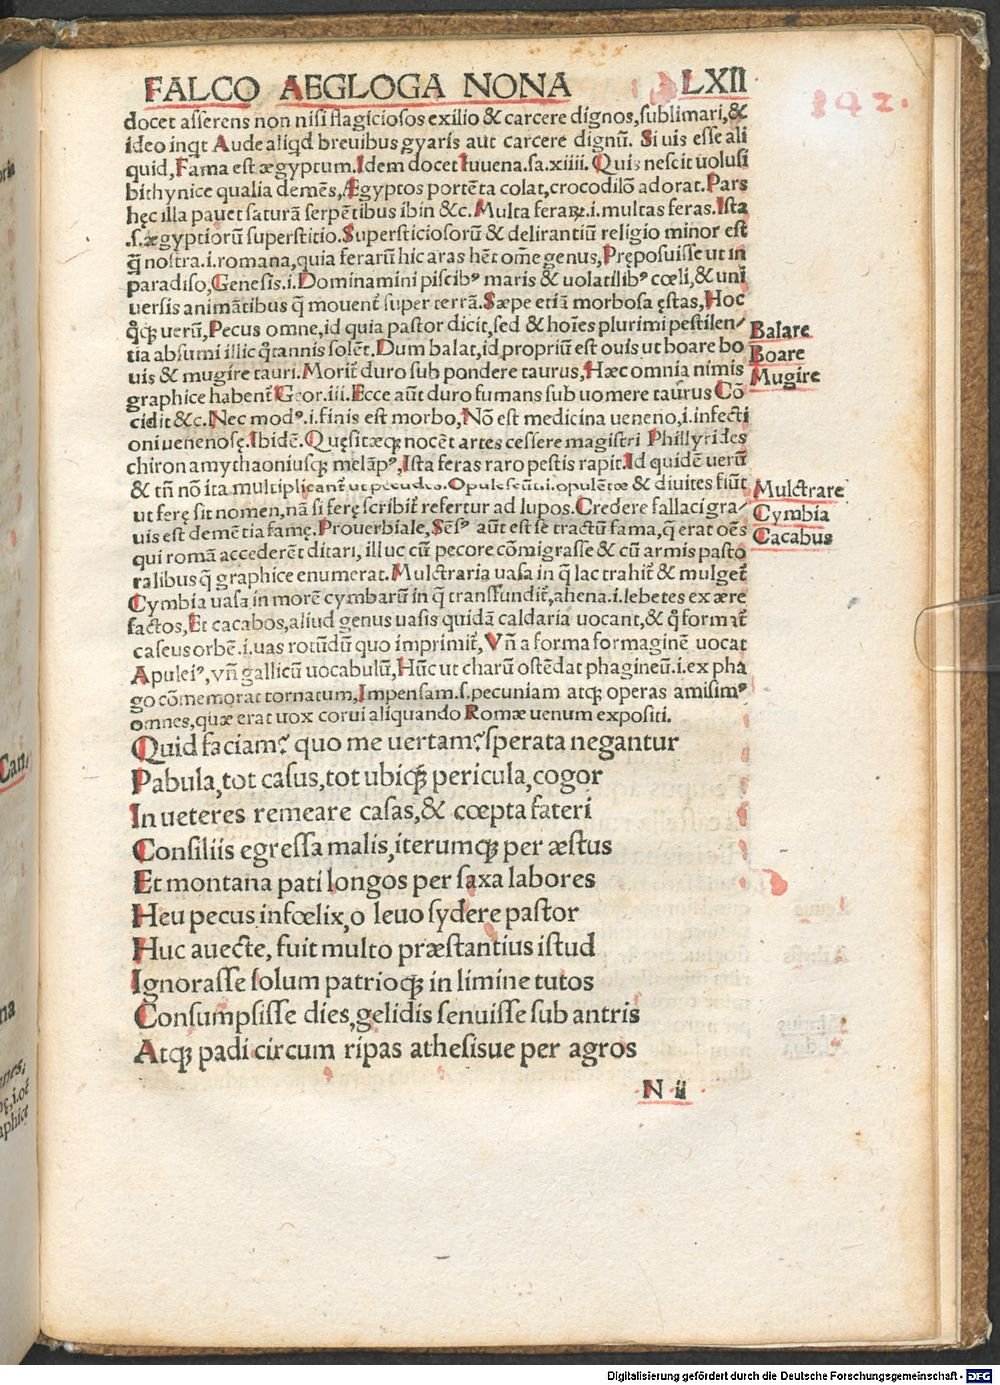 FALCO AEGLOGA NONA LXII
192.
docet asserens non nisi flagiciosos exilio & carcere dignos, sublimari, &
ideo inqt Aude aliqd brevibus gyaris aut carcere dignū. Si uis esse ali
quid, Fama est ægyptum. Idem docet Iuuena. sa. xiiii. Quis nescit uolusi
bithynice qualia demēs, Ægyptos portēta colat, crocodilō adorat. Pars
hęc illa pauet saturā serpētibus ibin &c. Multa feraꝝ .i. multas feras. Ista
.s. ægyptiorū superstitio. Supersticiosorū & delirantiū religio minor est
q̄ nostra .i. romana, quia ferarū hic aras het̄ om̄e genus, Pręposuisse ut in
paradiso, Genesis. i. Dominamini piscib⁹ maris & uolatilib⁹ cœli, & uni
uersis animātibus q̄ mouent̄ super terrā. Sæpe etiā morbosa ęstas, Hoc
q̊q; uerū, Pecus omne, id quia pastor dicit, sed & hoīes plurimi pestilen/
tia absumi illic q̊tannis solēt. Dum balat, id propriū est ouis ut boare bo
uis & mugire tauri. Morit̄ duro sub pondere taurus, Hæc omnia nimis
graphice habent̄ Geor. iii. Ecce aūt duro fumans sub uomere taurus Cō
cidit &c. Nec mod⁹ .i. finis est morbo, Nō est medicina ueneno, i. infecti
oni uenenosę. Ibidē. Quęsitæq; nocēt artes cessere magistri Phillyrides
chiron amythaoniusq; melāp⁹, Ista feras raro pestis rapit. Id quidē uerū
& tn̄ nō ita multiplicant̄ ut pecudes. Opulescūt .i. opulētæ & diuites fiūt
ut ferę sit nomen, nā si ferę scribit̄ refertur ad lupos. Credere fallaci gra/
uis est demētia famę. Prouerbiale, Sēs⁹ aūt est se tractū fama, q̄ erat oēs
qui romā accederēt ditari, illuc cū pecore cōmigrasse & cū armis pasto
ralibus q̄ graphice enumerat. Mulctraria uasa in q̄ lac trahit̄ & mulget̄
Cymbia uasa in morē cymbarū in q̄ transfundit̄, ahena .i. lebetes ex ære
factos, Et cacabos, aliud genus uasis quidā caldaria uocant, & q̊ format̄
caseus orbē .i. uas rotūdū quo imprimit̄, Vn̄ a forma formaginē uocat
Apulei⁹, vn̄ gallicū uocabulū, Hūc ut charū ostēdat phagineū .i. ex pha
go cōmemorat tornatum, Impensam .s. pecuniam atq; operas amisim⁹
omnes, quæ erat uox corui aliquando Romæ uenum expositi.
Balare
Boare
Mugire
Mulctrare
Cymbia
Cacabus
Quid faciam? quo me uertam? sperata negantur
Pabula, tot casus, tot ubiq; pericula, cogor
In ueteres remeare casas, & cœpta fateri
Consiliis egressa malis, iterumq; per æstus
Et montana pati longos per saxa labores
Heu pecus infœlix, o leuo sydere pastor
Huc auecte, fuit multo præstantius istud
Ignorasse solum patrioq; in limine tutos
Consumpsisse dies, gelidis senuisse sub antris
Atq; padi circum ripas athesisue per agros
N ii
Digitalisierung gefördert durch die Deutsche Forschungsgemeinschaft - DFG